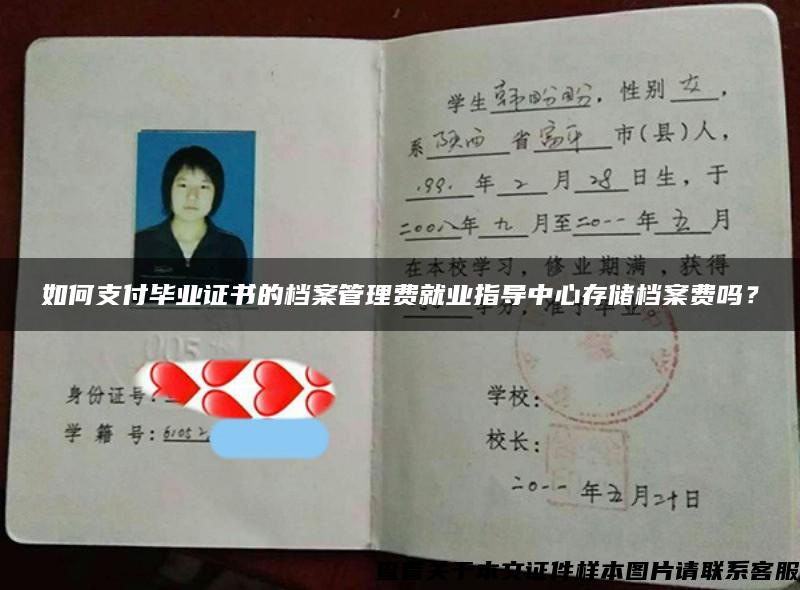 学生韩盼盼，性别女，
系陕西省富平市(县)人，
1991年2月28日生，于
二00八年九月至二0一一年五月
在本校学习，修业期满，获得
如何支付毕业证书的档案管理费就业指导中心存储档案费吗？
学分，准予毕业。
005
身份证号：
学籍号：61052
学校：
校长：
二0一一年五月二十日
查看关于本文证件样本图片请联系客服